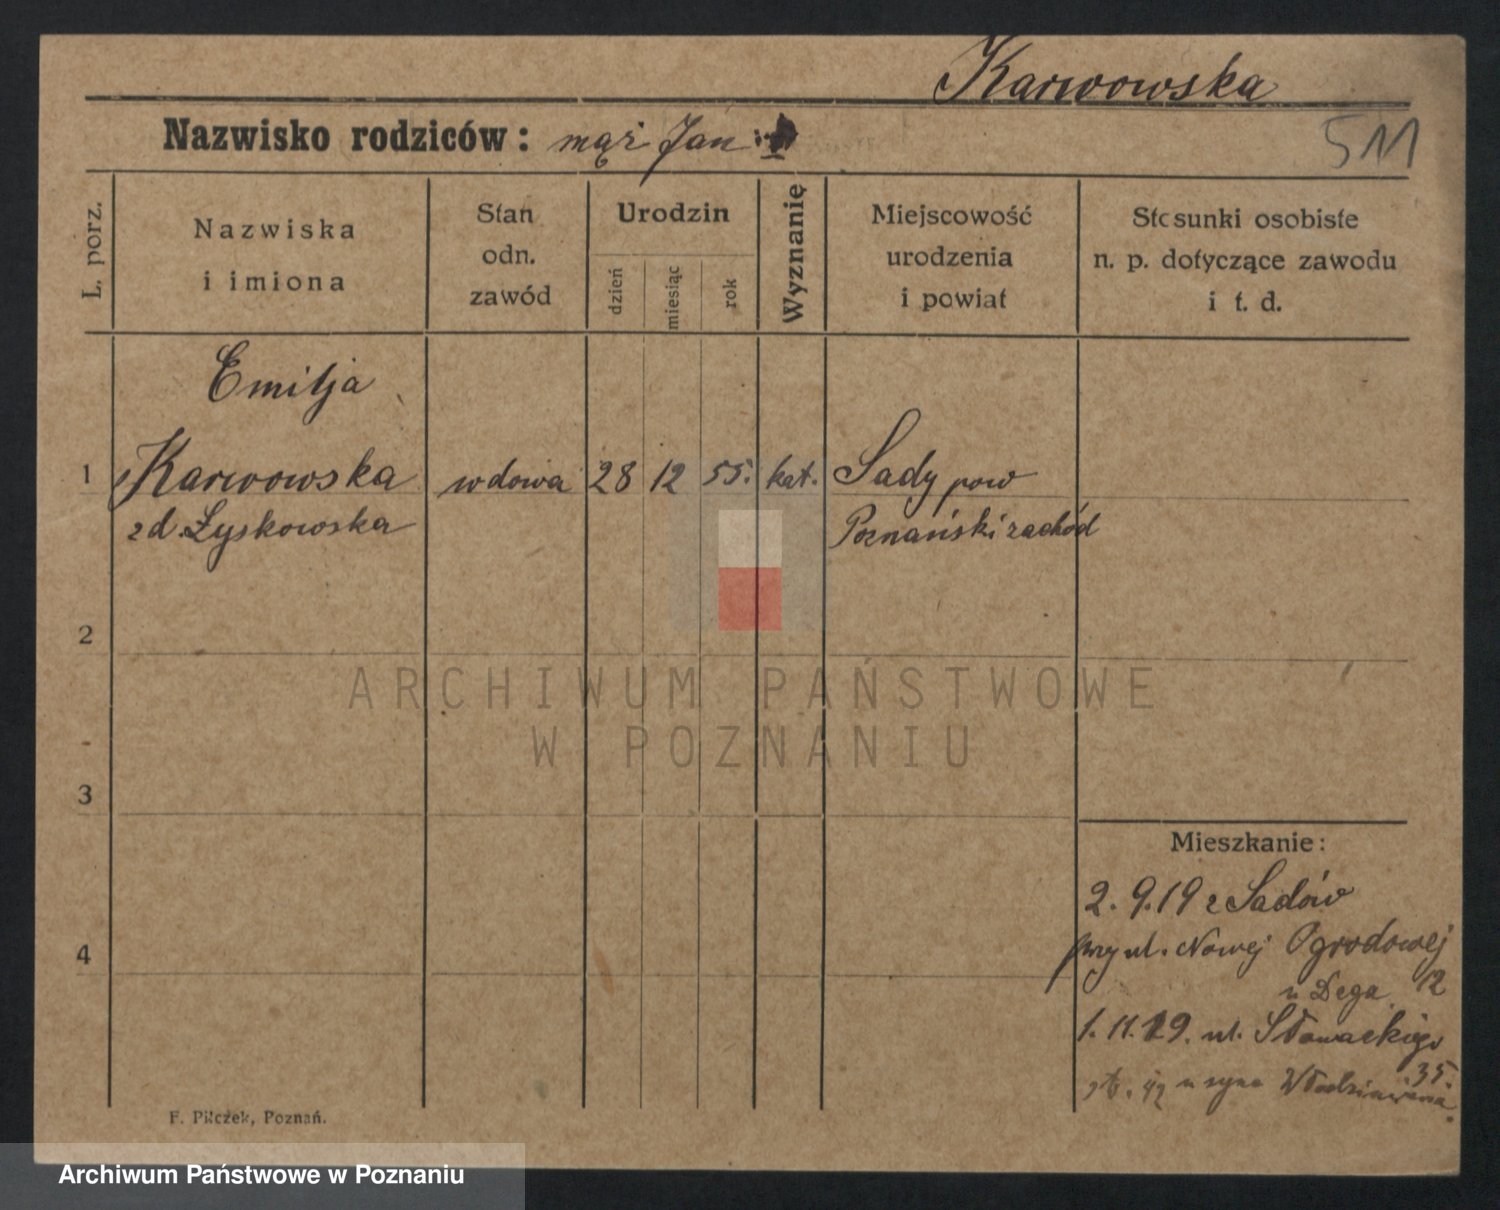 Karwowska
Nazwisko rodziców: mąż Jan
511
L. porz.
Nazwiska
i imiona
Stan
odn.
zawód
Urodzin
dzień
miesiąc
rok
Wyznanie
Miejscowość
urodzenia
i powiat
Stosunki osobiste
n. p. dotyczące zawodu
i t. d.
Emilja
1 Karwowska wdowa 28 12 55. kat. Sady pow
zd. Łyskowska Poznański zachód
2
ARCHIWUM PAŃSTWOWE
W POZNANIU
3
Mieszkanie:
2. 9. 19 z Sadów
4 przy ul. Nowej Ogrodowej
u Dega 12
1. 11. 19. ul. Słowackiego
35.
u syna Włodzimierza.
F. Pilczek, Poznań.
Archiwum Państwowe w Poznaniu